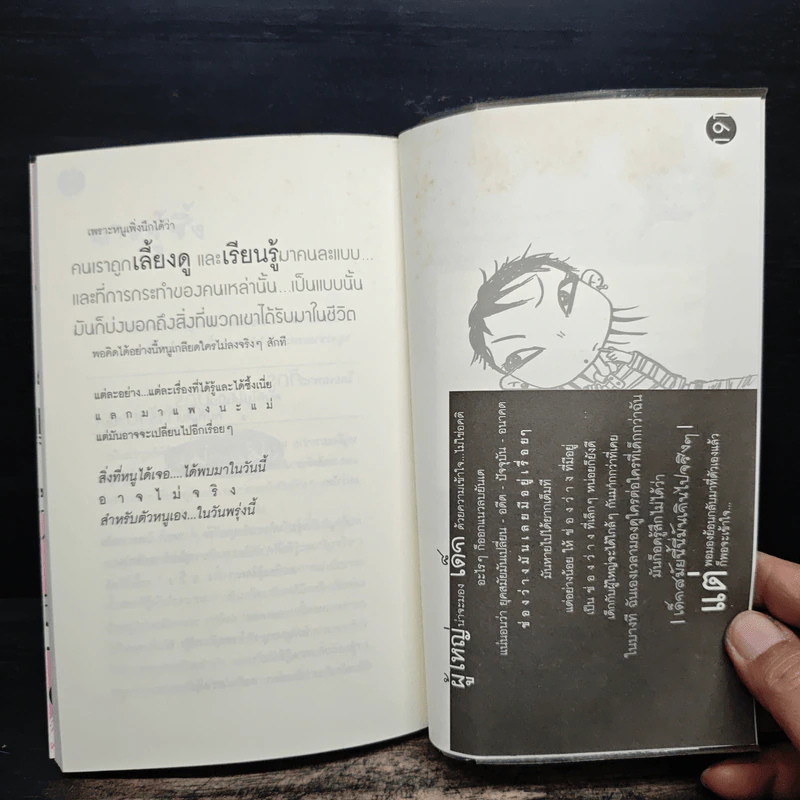 เพราะหนูเพิ่งนึกได้ว่า
คนเราถูกเลี้ยงดู และเรียนรู้มาคนละแบบ...
และที่การกระทำของคนเหล่านั้น...เป็นแบบนั้น
มันก็บ่งบอกถึงสิ่งที่พวกเขาได้รับมาในชีวิต
พอคิดได้อย่างนี้หนูเกลียดใครไม่ลงจริงๆ สักที
แต่ละอย่าง...แต่ละเรื่องที่ได้รู้และได้ซึ้งเนี่ย
แ ล ก ม า แ พ ง น ะ แ ม่
แต่มันอาจจะเปลี่ยนไปอีกเรื่อยๆ
สิ่งที่หนูได้เจอ....ได้พบมาในวันนี้
อ า จ ไ ม่ จ ริ ง
สำหรับตัวหนูเอง...ในวันพรุ่งนี้
ผู้ใหญ่ น่าจะมอง เด็ก ด้วยความเข้าใจ...ไม่ใช่อคติ
อะไรๆ ก็ออกแนวลบยันเต
แน่นอนว่า ยุคสมัยมันเปลี่ยน - อดีต - ปัจจุบัน - อนาคต
ช่ อ ง ว่ า ง มั น เ ล ย มี อ ยู่ เ รื่ อ ย ๆ
มันหายไปได้ยากเต็มที
แต่อย่างน้อย ให้ ช่ อ ง ว่ า ง ที่มีอยู่
เป็น ช่ อ ง ว่ า ง ที่เล็กๆ หน่อยก็ยังดี
เด็กกับผู้ใหญ่จะได้ใกล้ๆ กันมากกว่าที่เคย
ในบางที ฉันเองเวลามองดูใครต่อใครที่เด็กกว่าฉัน
มันก็อดรู้สึกไม่ได้ว่า
| เด็กสมัยนี้นี่มันเกินไปจริงๆ |
แต่ พอมองย้อนกลับมาที่ตัวเองแล้ว
ก็พอจะเข้าใจ...